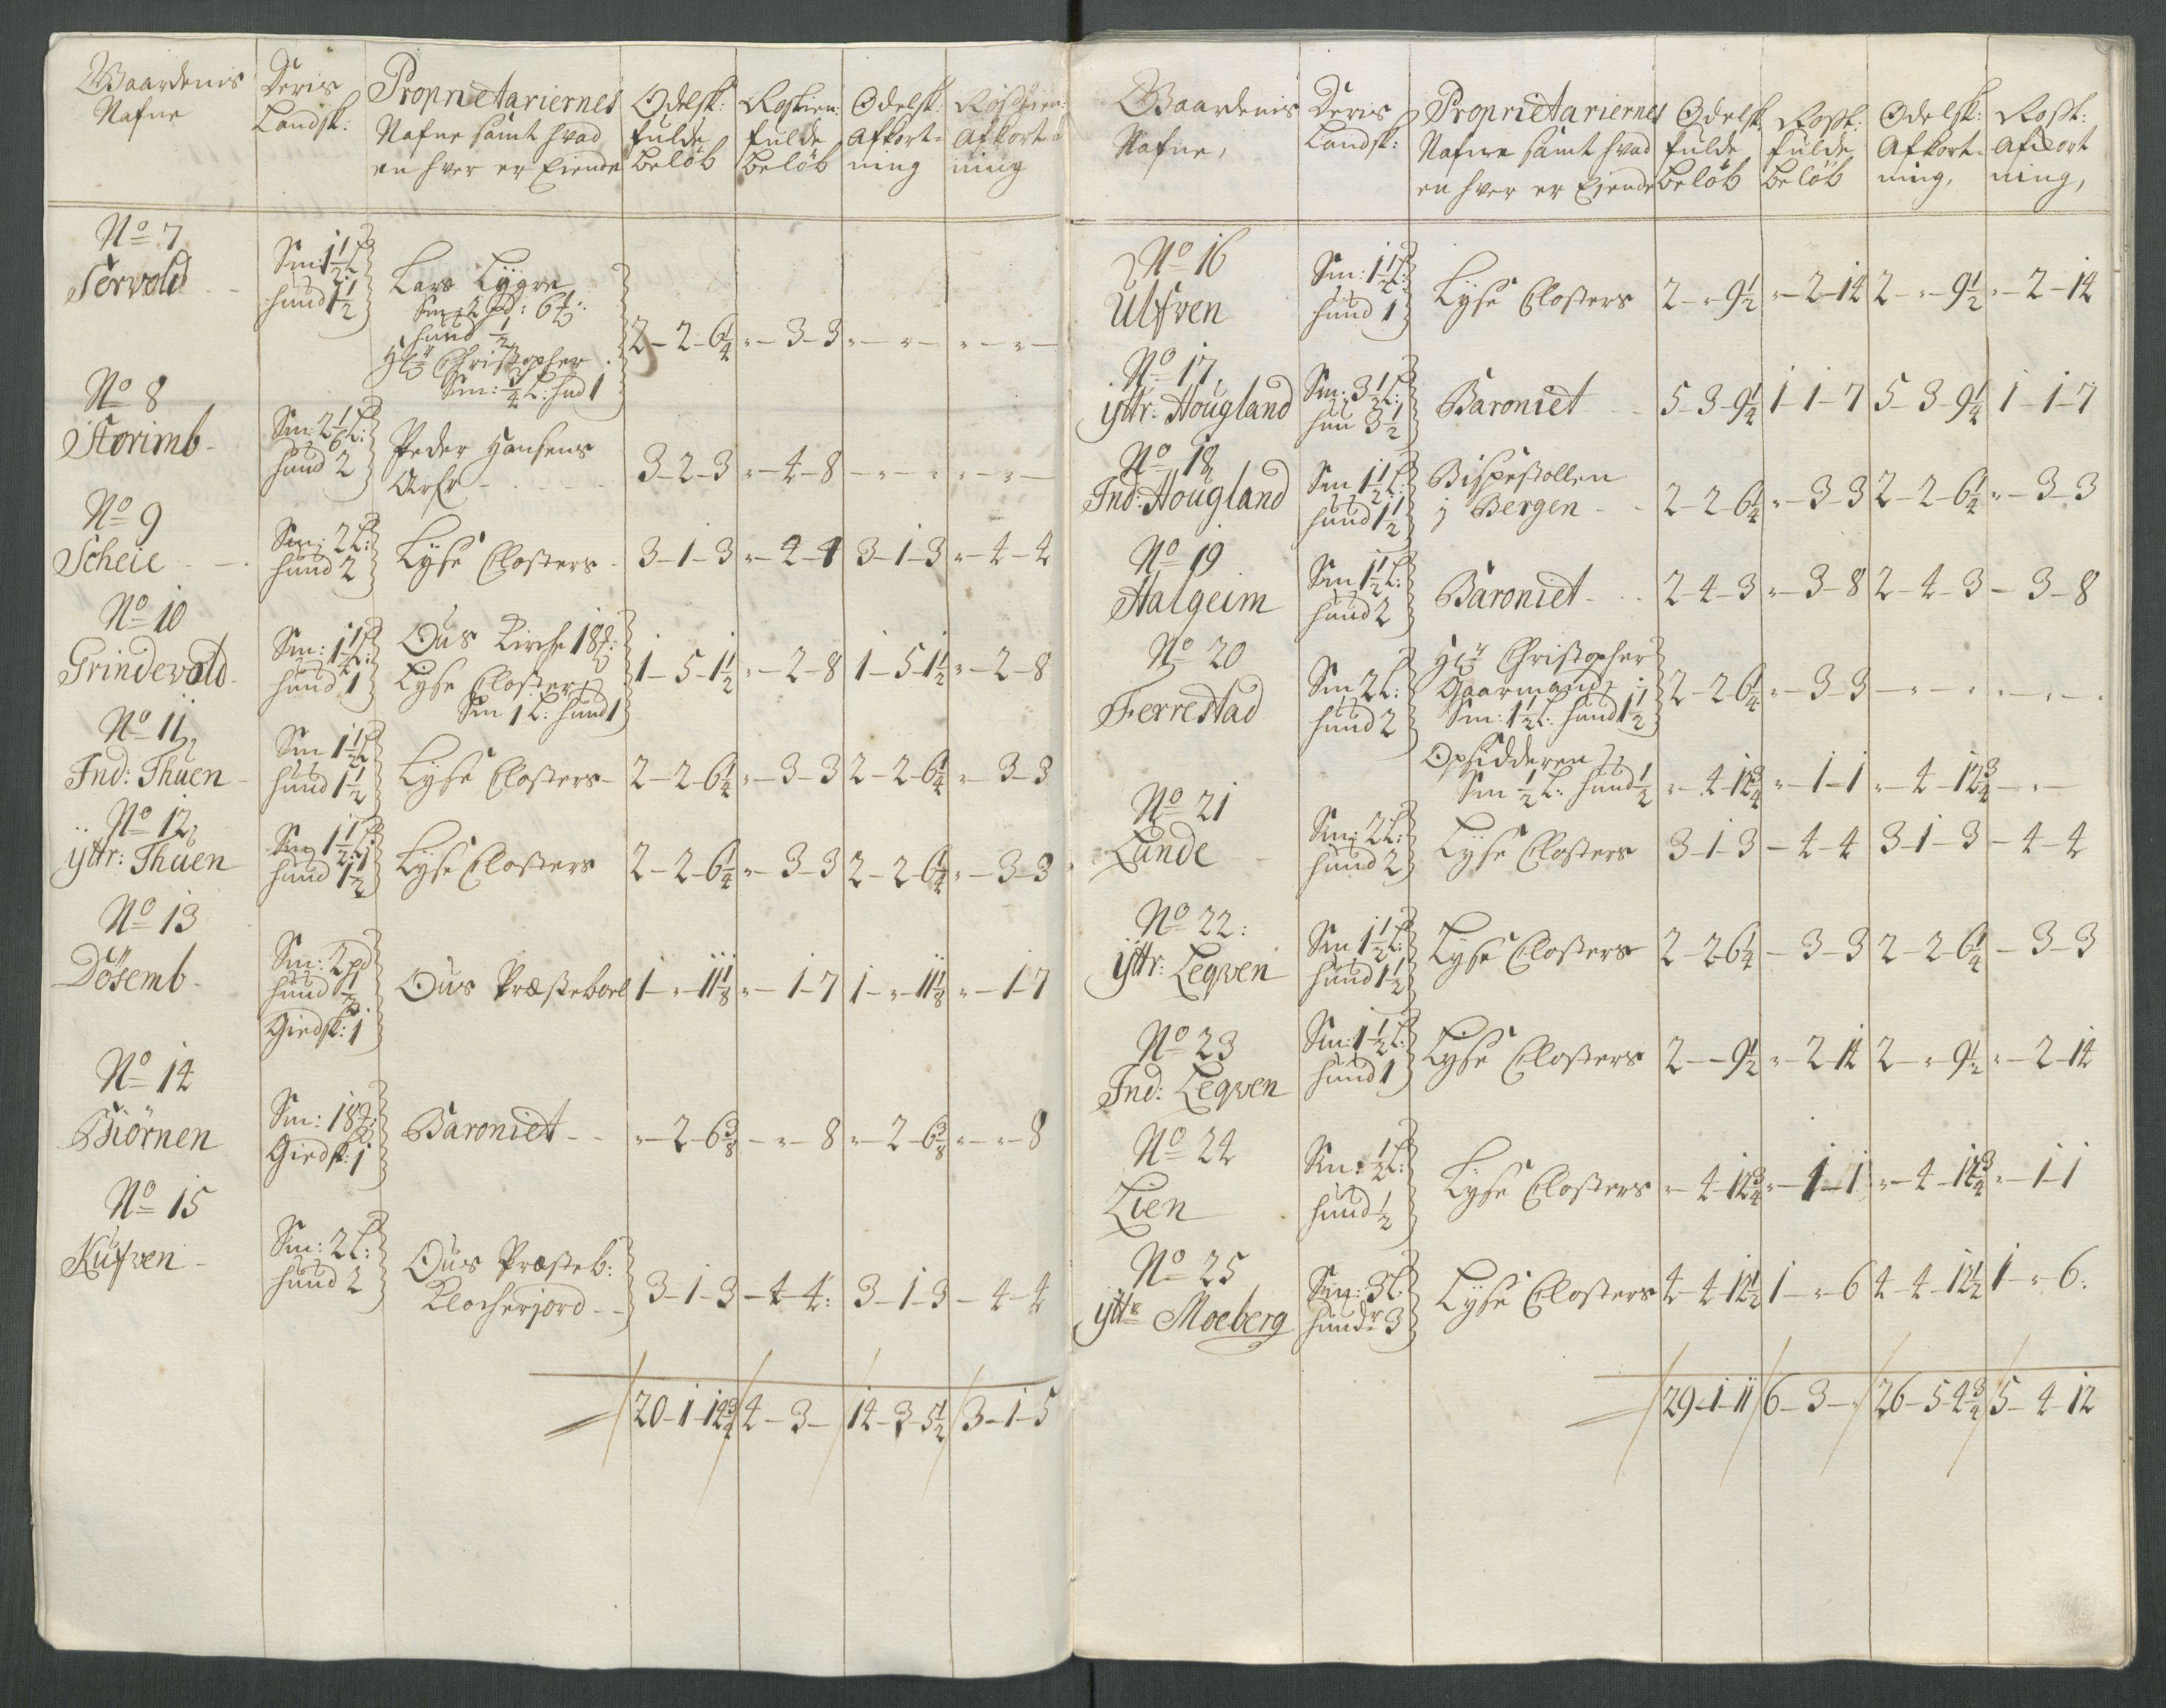 Gaardenis Nafne
Deris Landsk:
Proprietariernes Nafne samt hvad en hver er Eiende
Odelsk: fulde Beløb
Rostien: fulde Beløb
Odelsk: Afkort- ning
Rosthien: Afkort- ning
No 7
Tervold
Sm: 1½ L:
hund 1½
Lars Lygre
Sm: 2 pd: 6 ℔:
hund ½
Hr Christopher
Sm: ¾ L: hud 1
2-2-6¼ "-3-3 "-"- "-"-
No 8
Storimb
Sm: 2 1/6 L:
hund 2
Peder Hansens
Arfr
3-2-3 "-4-8 -"- "-"-
No 9
Scheie
Sm: 2 L:
hund 2
Lyse Closters
3-1-3 "-4-4 3-1-3 "-4-4
No 10
Grindevold
Sm: 1¼ L:
hund 1
Ous Kirche 18 ℔:
Lyse Closter
Sm 1 L: hund 1
1-5-1½ "-2-8 1-5-1½ "-2-8
No 11
Ind: Thuen
Sm 1½ L
hund 1½
Lyse Closters
2-2-6¼ "-3-3 2-2-6¼ "-3-3
No 12
ÿttr: Thuen
Sm 1½ L:
hund 1½
Lyse Closters
2-2-6¼ "-3-3 2-2-6¼ "-3-3
No 13
Dösemb
Sm: 2 pd
hund ½
Giedsk: 1
Ous Præsteboel
1-"-11⅛ "-1-7 1-"-11⅛ "-1-7
No 14
Biörnen
Sm: 18 ℔:
Giedsk: 1
Baroniet
"-2-6⅜ -"-8 "-2-6⅜ "-"-8
No 15
Kufven
Sm: 2 L:
hund 2
Ous Præsteb:
Klocherjord
3-1-3 -4-4: 3-1-3 -4-4
20-1-14¾ 4-3- 14-3-5½ 3-1-5
Gaardenis Nafne,
Deris Landsk:
Proprietariernes Nafne samt hvad en hver er Ejende
Odelsk: fulde Beløb
Rostk: fulde Beløb
Odelsk: Afkort- ning,
Rostk: Afkort ning,
No 16
Ulfven
Sm: 1½ L:
hund 1
Lyse Closters
2-"-9½ "-2-14 2-"-9½ "-2-14
No 17
ÿttr: Hougland
Sm: 3½ L:
hun 3½
Baroniet
5-3-9¼ 1-1-7 5-3-9¼ 1-1-7
No 18
Ind: Hougland
Sm 1½ L:
hund 1½
Bispestollen
j Bergen
2-2-6¼ "-3-3 2-2-6¼ "-3-3
No 19
Halgeim
Sm 1½ L:
hund 2
Baroniet
2-4-3 "-3-8 2-4-3 -3-8
No 20
Ferrestad
Sm 2 L:
hund 2
Hr Christopher
Gaarmand
Sm: 1½ L: hund 1½
2-2-6¼ "-3-3 -"- "-"-
Opsidderen
Sm ½ L: hund ½
"-4-12¾ "-1-1 "-4-12¾ -"-
No 21
Lunde
Sm: 2 L:
hund 2
Lyse Closters
3-1-3 -4-4 3-1-3 -4-4
No 22:
ÿttr: Leqven
Sm 1½ L:
hund 1½
Lyse Closters
2-2-6¼ -3-3 2-2-6¼ -3-3
No 23
Ind: Leqven
Sm: 1½ L:
hund 1
Lyse Closters
2-"-9½ "-2-14 2-"-9½ "-2-14
No 24
Lien
Sm: ½ L:
hund ½
Lyse Closters
"-4-12¾ "-1-1 "-4-12¾ "-1-1
No 25
ÿttr Moeberg
Sm: 3 L
hundr 3
Lyse Closters
4-4-12½ 1-"-6 4-4-12½ 1-"-6:
29-1-11 6-3-" 26-5-4¾ 5-4-12